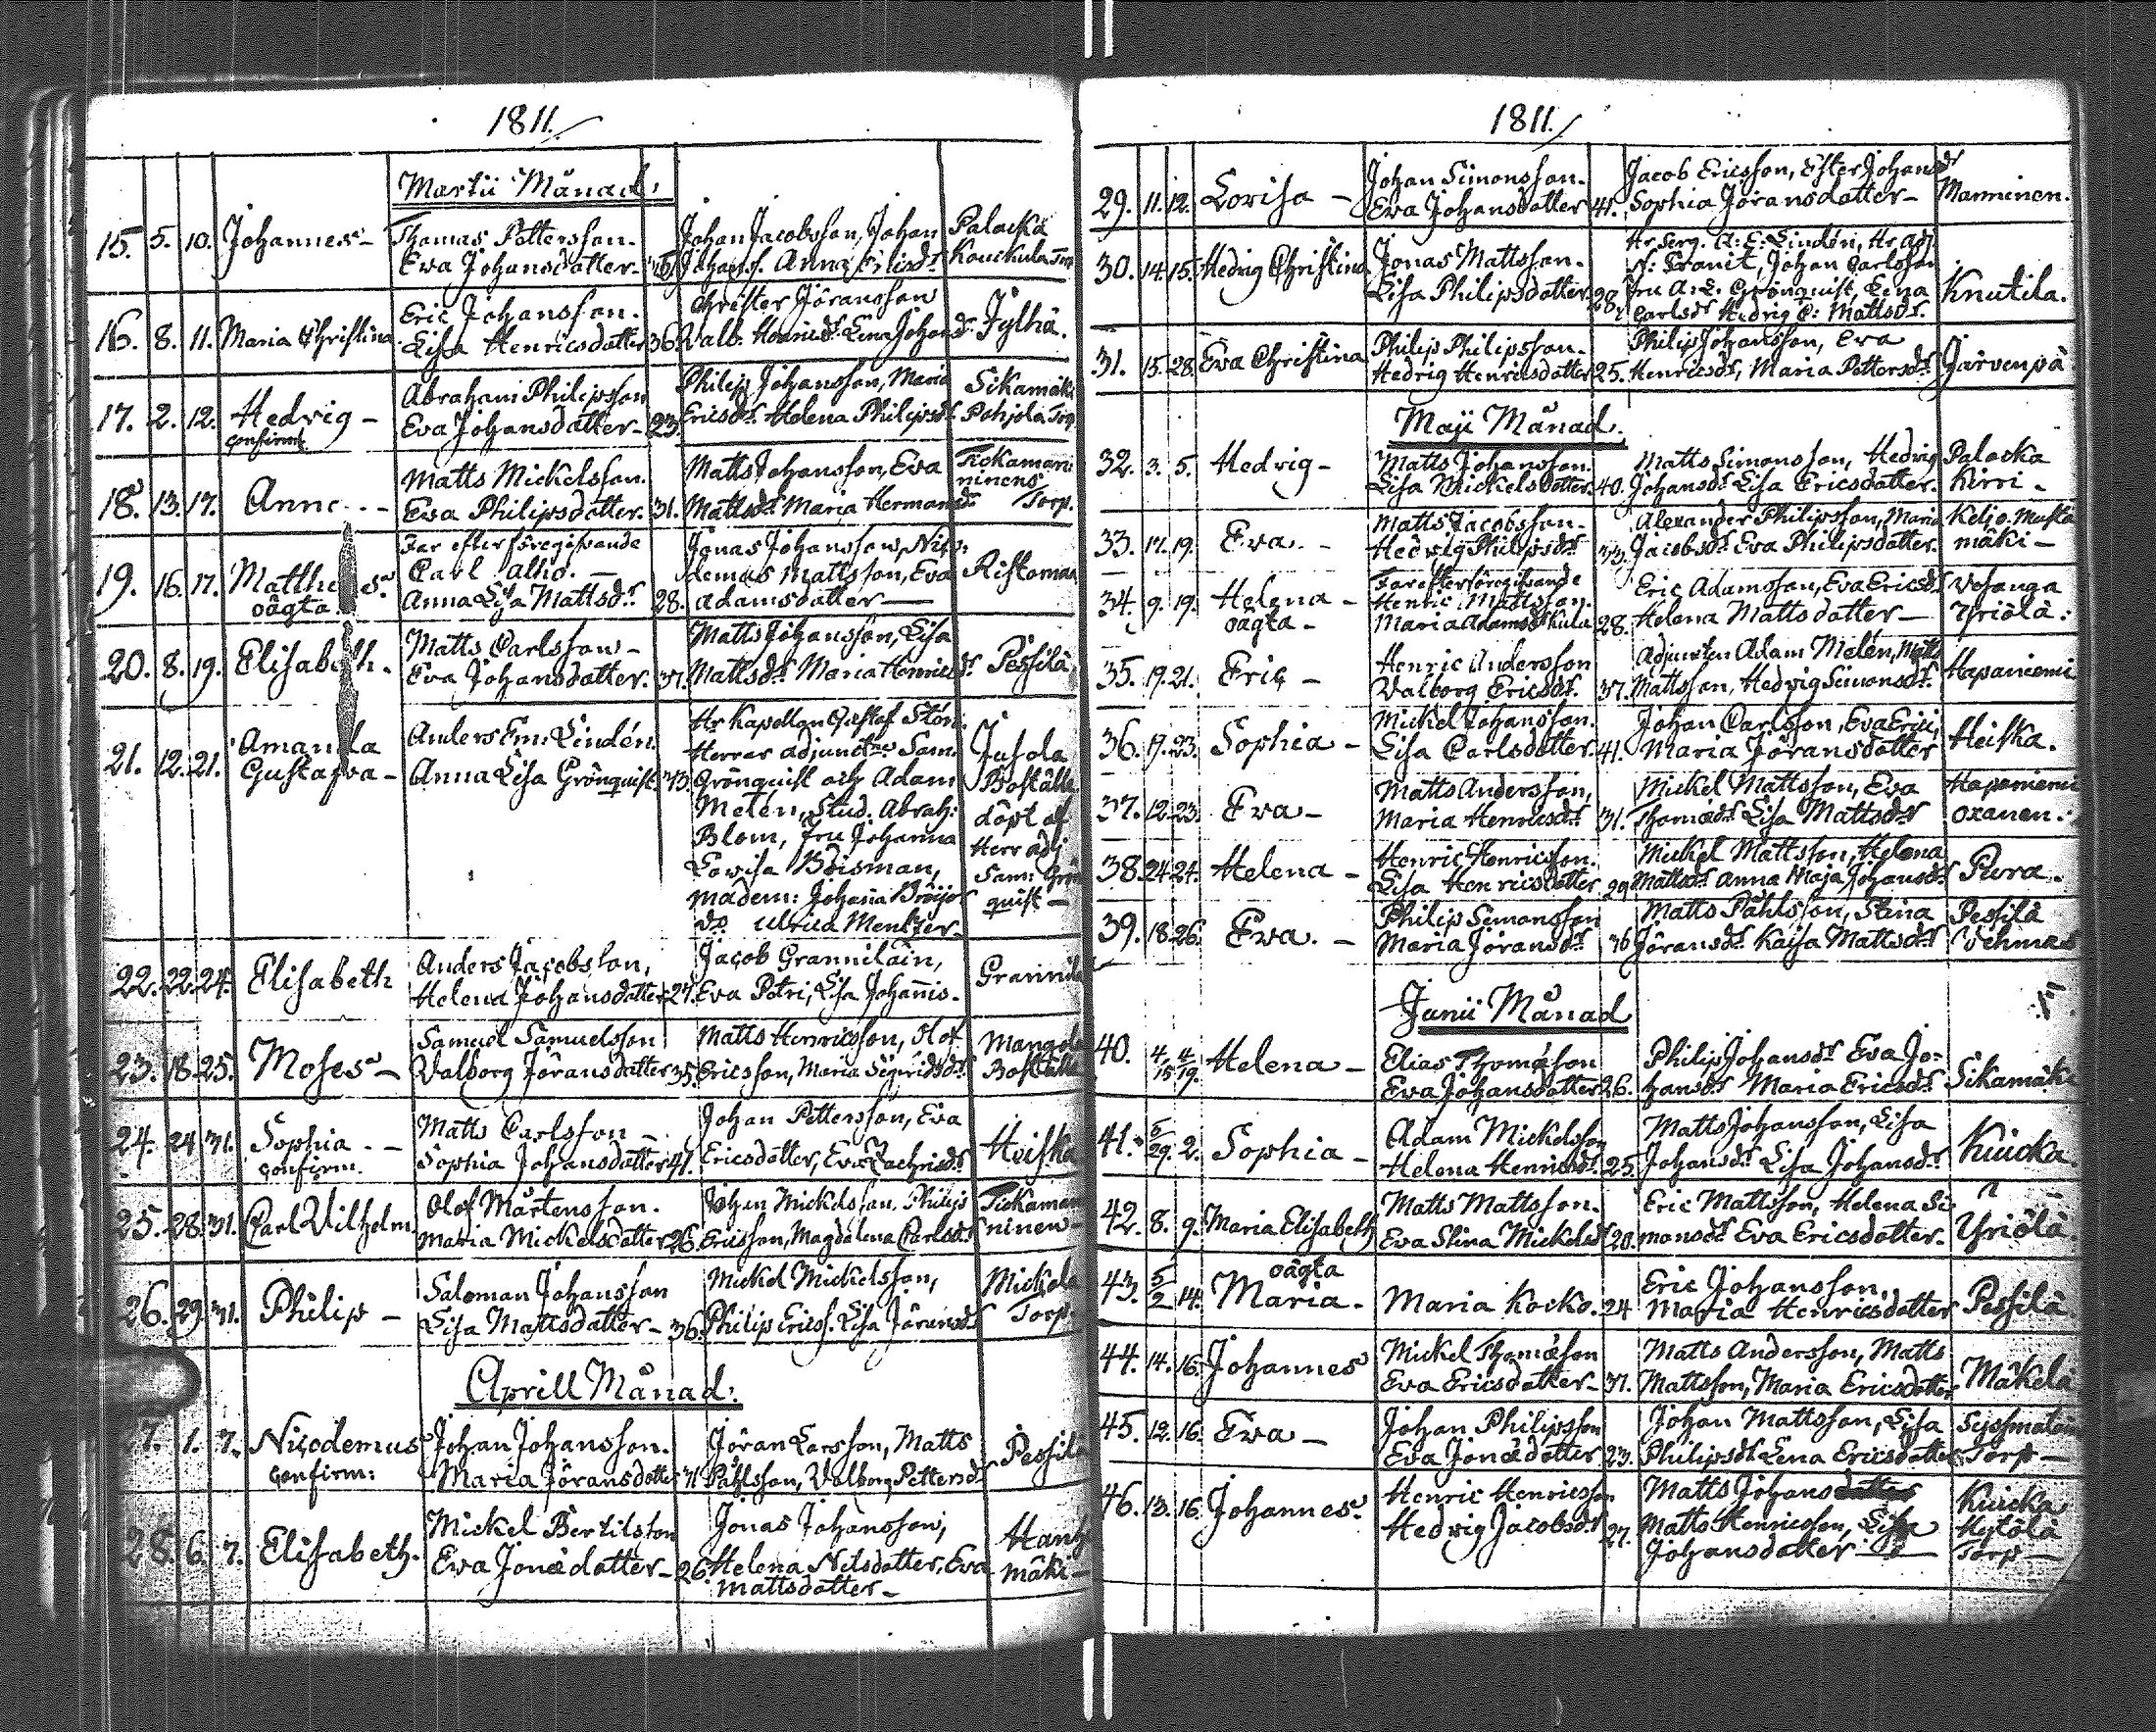 1811.
Martii Månad:
15. 5. 10. Johannes - Thomas Pettersson. Johan Jacobsson, Johan Palacka
Eva Johansdatter - Johanss. Anna Koukkula
16. 8. 11. Maria Christina Eric Johansson. Christer Jöransson
Lisa Henricsdatter 36. Valb. Henricsdr Lena Johansdr Jylhä.
17. 2. 12. Hedvig - Abraham Philipsson Philip Johansson, Maria Sikamäki
confirm. Eva Johansdatter - 23. Ericsdr Helena Philipsdr Pohjola Torp
18. 13. 17. Anna - - Matts Mickelsson. Matts Johansson, Eva Tickaman
Eva Philipsdatter. 31. Mattsdr Maria Hermansdr ninens Torp.
19. 16. 17. Mattheus Far efter föregifvande Jonas Johansson, Nico:
oägta Carl Alho. - demus Mattsson, Eva Ristaman
Anna Lisa Mattsdr 28. Adamsdatter -
20. 8. 19. Elisabeth. Matts Carlsson - Matts Johansson, Lisa
Eva Johansdatter. 37. Mattsdr Maria Henricsdr Pessilä
21. 12. 21. Amanda Anders Em: Lindén. Hr Kapellan Gustaf
Gustafva - Anna Lisa Grönquist. Herrar adjuncter Sam. Jusola
Grönquist och Adam Boställe
Melen, Stud. Abrah: döpt af
Blom, fru Johanna Herr adj
Lovisa Boisman, Sam: Grön
madem: Johana quist -
do Ulrica Mentzer -
22. 22. 24. Elisabeth Anders Jacobsson, Jacob Grannilain,
Helena Johansdatter 27. Eva Petri, Lisa Johannis. Grannila
23. 18. 25. Moses - Samuel Samuelsson Matts Henricsson, Olof
Valborg Jöransdatter 35. Ericsson, Maria Sigfridsdr Boställe
24. 24 31. Sophia - - Matts Carlsson - Johan Pettersson, Eva
confirm. Sophia Johansdatter 41. Ericsdatter, Eva Zachrisdr Heiska
25. 28. 31. Carl Vilhelm Olof Mårtensson. Johan Mickelsson, Philip Tickaman
Maria Mickelsdatter 26. Ericsson, Magdalena Carlsdr ninen -
26. 29. 31. Philip - Salomon Johansson Mickel Mickelsson, Mickola
Lisa Mattsdatter - 36. Philip Ericss. Lisa Jöransdr Torp.
Aprill Månad:
7. 1. 7. Nicodemus Johan Johansson. Jöran Larsson, Matts
confirm: Maria Jöransdatter Påhlsson, Valborg Pettersdr Pessilä
28. 6. 7. Elisabeth. Mickel Bertilsson Jonas Johansson,
Eva Jonædatter - 26. Helena Nilsdatter, Eva
Mattsdatter - mäki -
1811.
29. 11. 12. Lovisa - Johan Simonsson. Jacob Ericsson, Ester Johansdr
Eva Johansdatter 41. Sophia Jöransdatter - Manninen.
30. 14. 15. Hedvig Christina Jonas Mattsson. Hr Serg. A: E: Lindén, Hr Adj.
Lisa Philipsdatter 28. Johan Carlsson
fru A: L: Grönquist, Lena Knutila.
Carlsdr Hedvig C: Mattsdr.
31. 15. 28. Eva Christina Philip Philipsson. Philip Johansson, Eva
Hedvig Henricsdatter 25. Henricsdr, Maria Pettersdr Järvenpä
Maji Månad.
32. 3. 5. Hedvig - Matts Johansson. Matts Simonsson, Hedvig Palacka
Lisa Mickelsdatter. 40. Johansdr Lisa Ericsdatter. Kirri -
33. 17. 19. Eva. - Matts Jacobsson - Alexander Philipsson, Maria Keljo. Musta
Hedvig Philipsdr 33. Jacobsdr Eva Philipsdatter. mäki -
34. 9. 19. Helena - Far efter föregifvande Eric Adamsson, Eva Ericsdr Vesanga
oägta - Henric Mattsson. Helena Mattsdatter - Yriölä:
Maria Adamsdr 28.
35. 19. 21. Eric - Henric Andersson Adjuncten Adam Melén, Matts
Valborg Ericsdr. 37. Mattsson, Hedvig Simonsdr Hapaniemi
36. 19. 23. Sophia - Mickel Johansson. Johan Carlsson, Eva Erici,
Lisa Carlsdatter. 41. Maria Jöransdatter Heiska.
37. 12. 23. Eva - Matts Andersson, Mickel Mattsson, Eva Hapaniemi
Maria Henricsdr 31. Thomædr Lisa Mattsdr oxanen.
38. 24. 24. Helena - Henric Henricsson. Mickel Mattsson, Helena
Lisa Henricsdatter 29. Mattsdr Anna Maja Johansdr Pura.
39. 18. 26. Eva. - Philip Simonsson Matts Påhlsson, Stina Pessilä
Maria Jöransdr 36 Jöransdr Kaisa Mattsdr Vehmas
Junii Månad
40. 4/15 4/19. Helena - Elias Thomæson Philip Johansdr Eva Jo-
Eva Johansdatter 26. hansdr Maria Ericsdr Sikamäki
41. 5/29. 2. Sophia - Adam Mickelsson Matts Johansson, Lisa
Helena Henricsdr 25. Johansdr Lisa Johansdr Kuicka.
42. 8. 9. Maria Elisabeth Matts Mattsson. Eric Mattsson, Helena Si-
Eva Stina Mickelsdr 20. monsdr Eva Ericsdatter. Yriölä.
43. 5/2 14. oägta Eric Johansson,
Maria. Maria Kocko. 24 Maria Henricsdatter Pessilä
44. 14. 16. Johannes Mickel Thomæson Matts Andersson, Matts
Eva Ericsdatter - 31. Mattsson, Maria Ericsdatter Mäkelä
45. 12. 16. Eva - Johan Philipsson Johan Mattsson, Lisa
Eva Jonædatter 23. Philipsdr Lena Ericsdatter Torp -
46. 13. 16. Johannes. Henric Henricsson Matts Johansdatter Kuicka
Hedvig Jacobsdr 27. Matts Henricsson, Lisa Hytölä
Johansdatter - Torp -